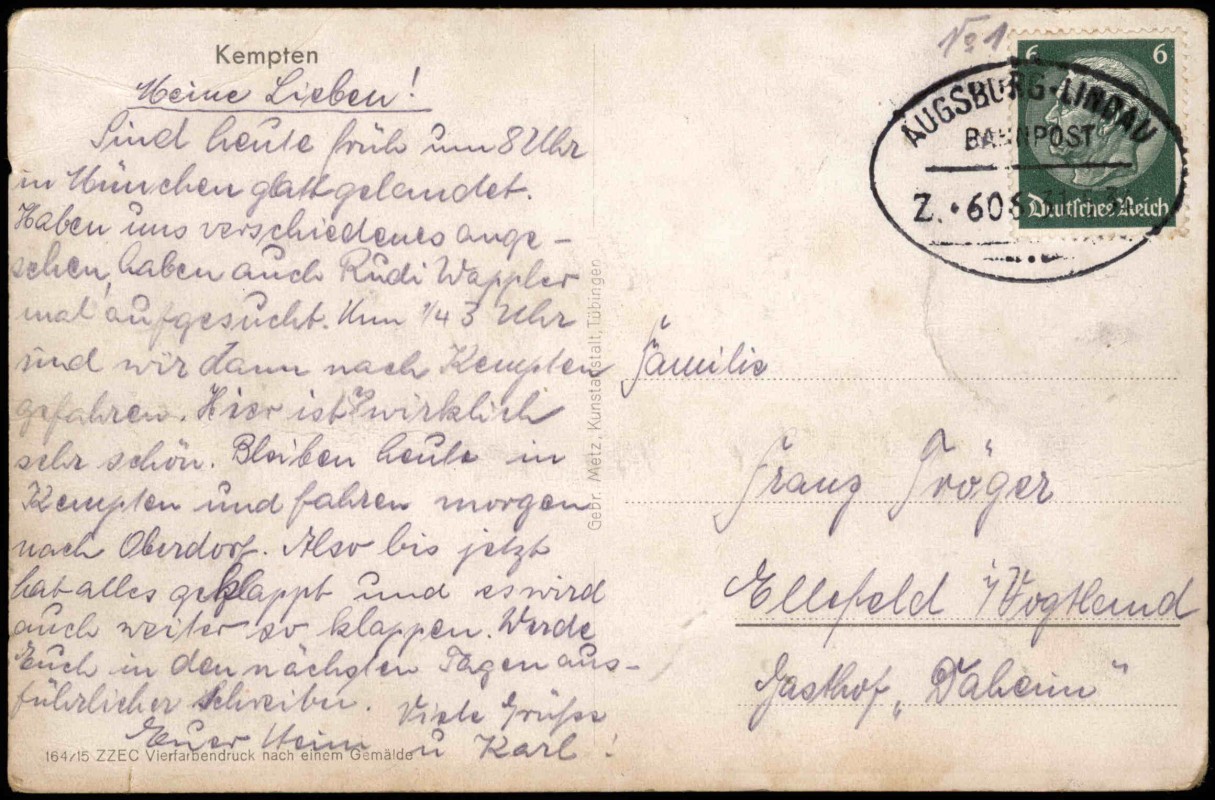 Kempten
Meine Lieben!
Sind heute früh um 8 Uhr
in München glatt gelandet.
Haben uns verschiedenes ange-
sehen, haben auch Rudi Wappler
mal aufgesucht. Um 1/4 3 Uhr
sind wir dann nach Kempten
gefahren. Hier ist wirklich
sehr schön. Bleiben heute in
Kempten und fahren morgen
nach Oberdorf. Also bis jetzt
hat alles geklappt und es wird
auch weiter so klappen. Werde
Euch in den nächsten Tagen aus-
führlicher schreiben. Viele Grüße
Euer Heim u Karl!
164/15 ZZEC Vierfarbendruck nach einem Gemälde
Gebr. Metz, Kunstanstalt, Tübingen
No 1
6 6
Deutsches Reich
AUGSBURG-LINDAU
BAHNPOST
Z. 606
Familie
Franz Tröger
Ellefeld i/Vogtland
Gasthof „Daheim"